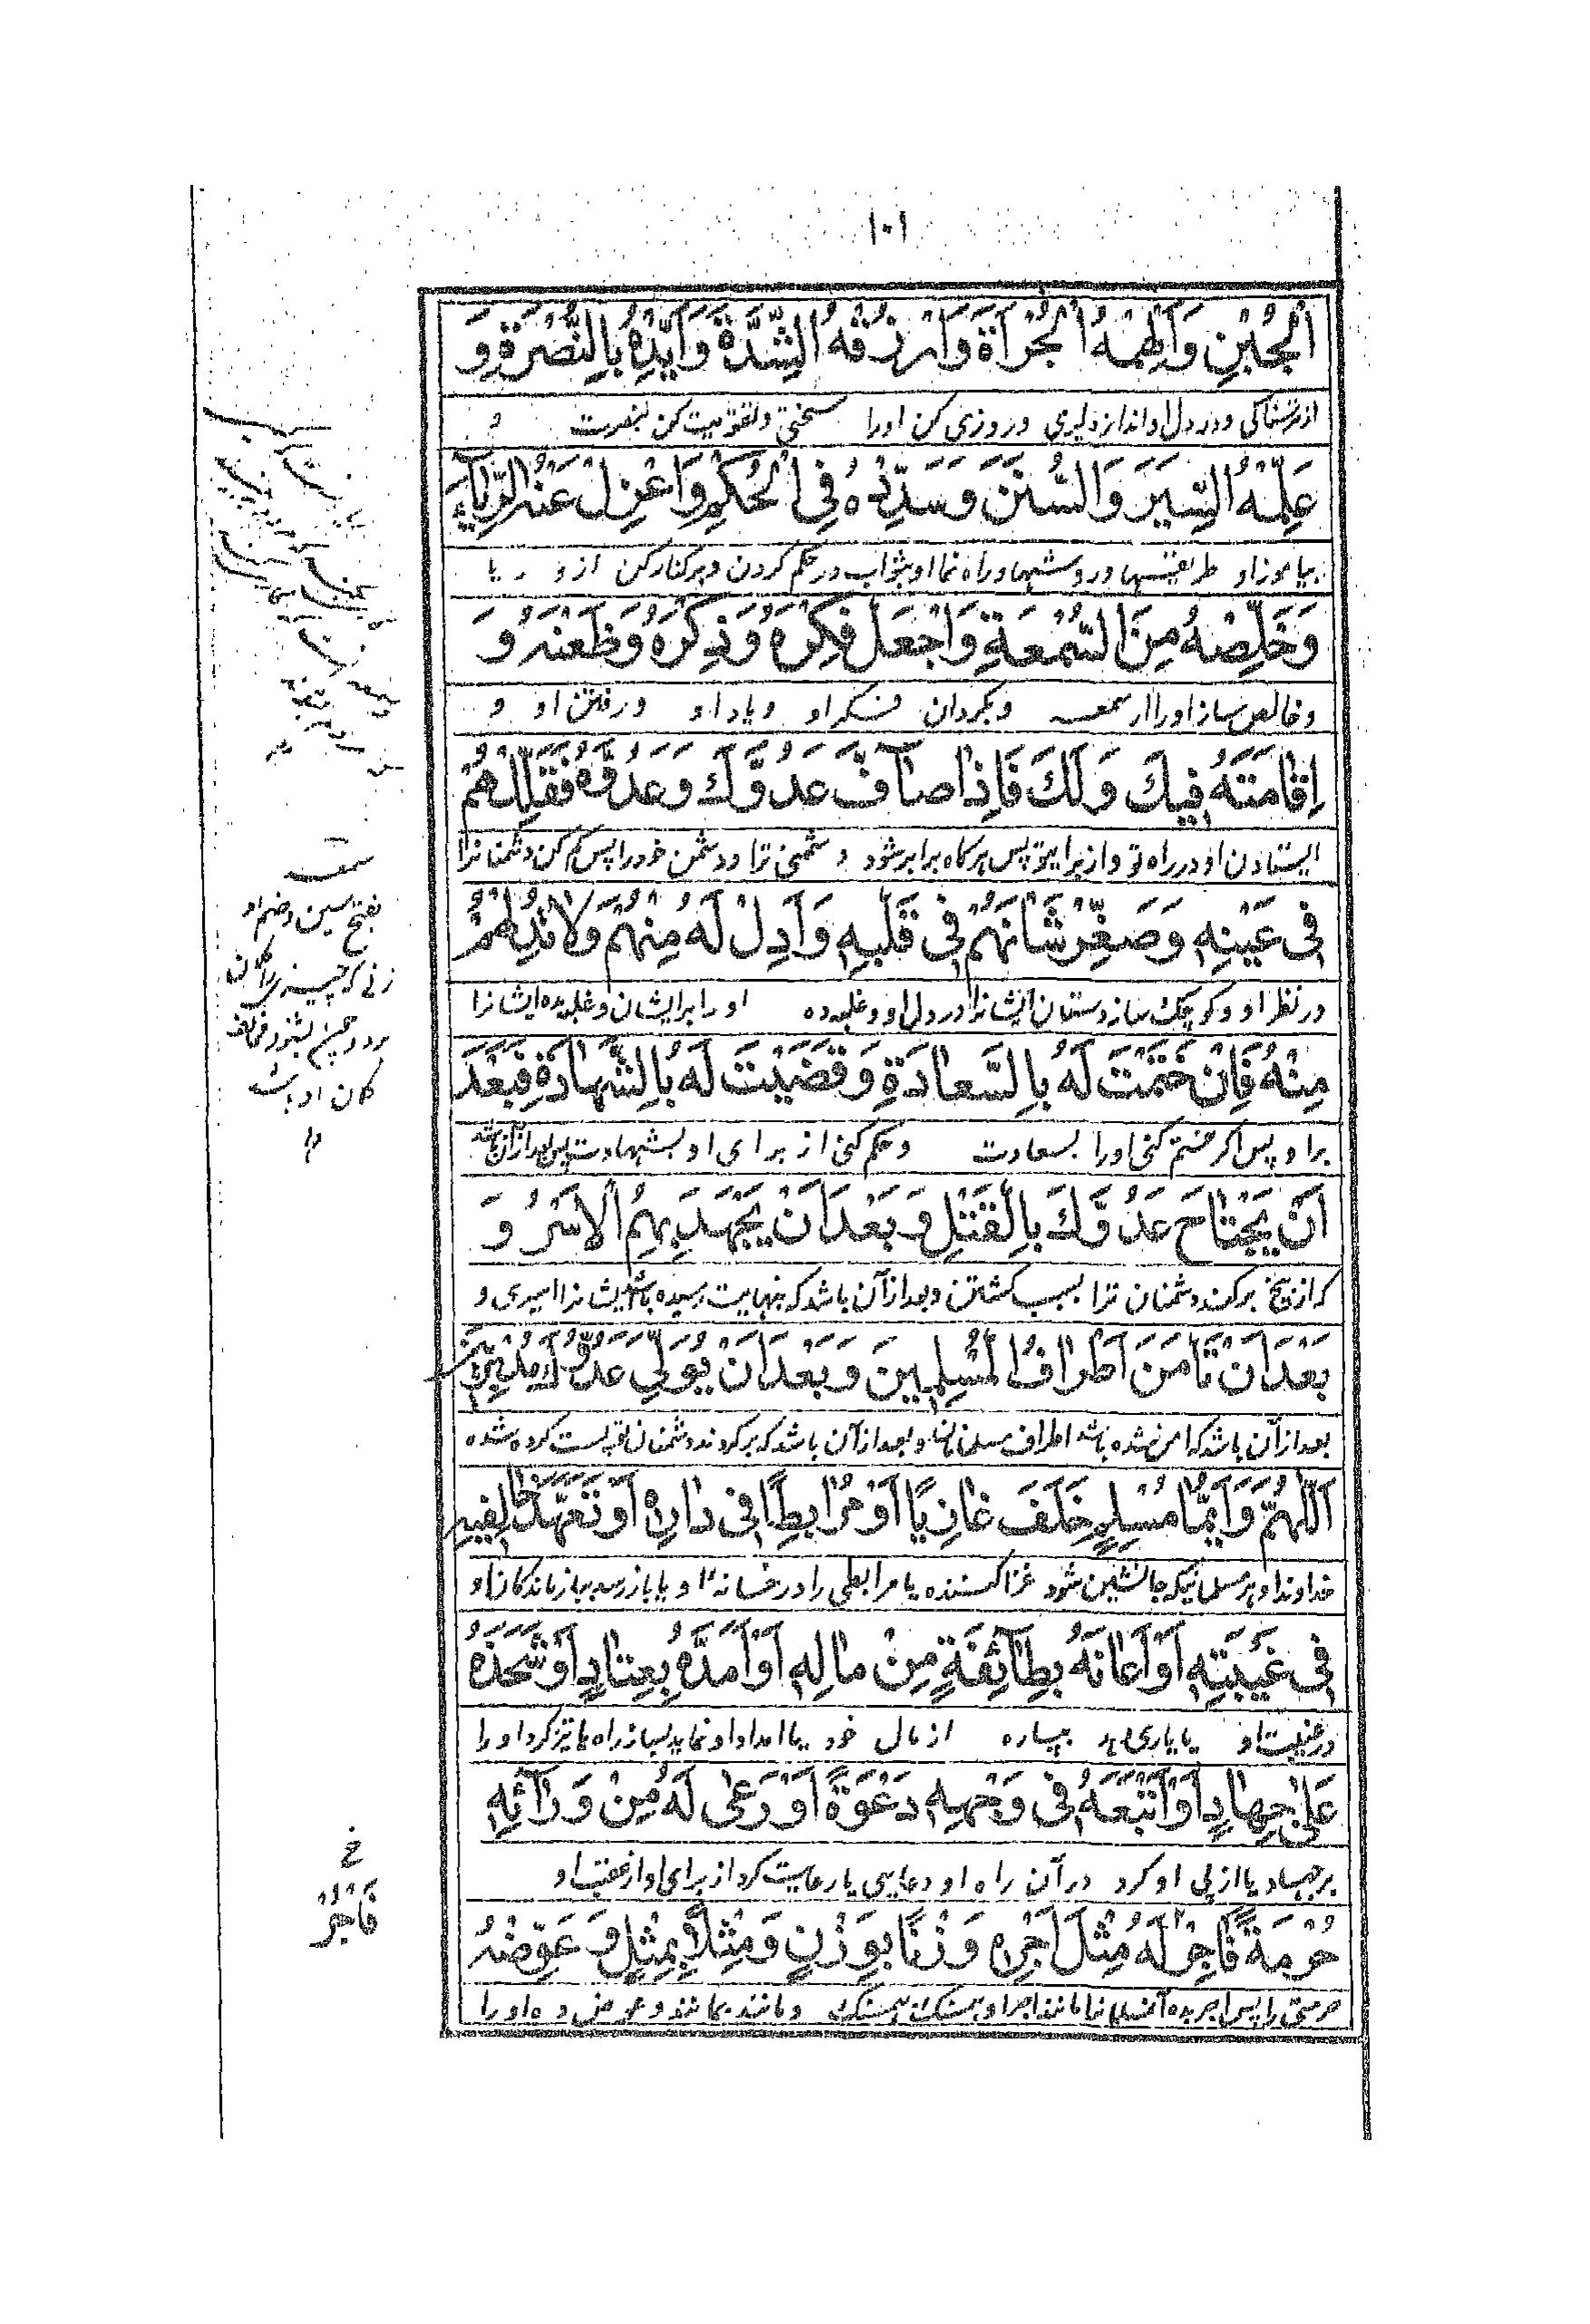 ١٠١
الْجُبْنِ وَاَلْهِمْهُ الْجُرْأَةَ وَارْزُقْهُ الشِّدَّةَ وَاَيِّدْهُ بِالنُّصْرَةِ وَ
از ترسناکی و در دل او انداز دلیری و روزی کن او را سختی و تقویت کن بنصرت و
عَلِّمْهُ السِّيَرَ وَالسُّنَنَ وَسَدِّدْهُ فِي الْحُكْمِ وَاعْزِلْ عَنْهُ الرِّيَاءَ
بیاموز او طریقتها و روشها و راه نما او بثواب در حکم کردن و برکنار کن از و ریا
وَخَلِّصْهُ مِنَ السُّمْعَةِ وَاجْعَلْ فِكْرَهُ وَذِكْرَهُ وَظَعْنَهُ وَ
و خالص ساز او را از سمعه و بگردان فکر او و یاد او و رفتن او و
اِقَامَتَهُ فِيكَ وَلَكَ فَاِذَا صَآفَّ عَدُوَّكَ وَعَدُوَّهُ فَقَلِّلْهُمْ
ایستادن او در راه تو و از برای تو پس هر گاه برابر شود دشمن ترا و دشمن خود را پس کم کن دشمنانرا
فِي عَيْنِهِ وَصَغِّرْ شَاْنَهُمْ فِي قَلْبِهِ وَاَدِلْ لَهُ مِنْهُمْ وَلَا تُدِلْهُمْ
در نظر او و کوچک ساز دستان ایشانرا در دل او و غلبه ده او را بر ایشان و غلبه مده ایشانرا
مِنْهُ فَاِنْ خَتَمْتَ لَهُ بِالسَّعَادَةِ وَقَضَيْتَ لَهُ بِالشَّهَادَةِ فَبَعْدَ
بر او پس اگر ختم کنی او را بسعادت و حکم کنی از برای او بشهادت پس بعد از آن باشد
اَنْ يَجْتَاحَ عَدُوَّكَ بِالْقَتْلِ وَبَعْدَ اَنْ يَجْهَدَ بِهِمُ الْاَسْرُ وَ
که از بیخ برکند دشمنان ترا بسبب کشتن و بعد از آن باشد که بنهایت رسیده باشد ایشانرا اسیری و
بَعْدَ اَنْ تَاْمَنَ اَطْرَافُ الْمُسْلِمِينَ وَبَعْدَ اَنْ يُوَلِّيَ عَدُوُّكَ مُدْبِرِينَ
بعد از آن باشد که امن شده باشد اطراف مسلمانان و بعد از آن باشد که برگردند دشمنان تو پشت کرده شده
اَللّٰهُمَّ وَاَيُّمَا مُسْلِمٍ خَلَفَ غَازِيًا اَوْ مُرَابِطًا فِي دَارِهِ اَوْ تَعَهَّدَ خَالِفِيهِ
خداوندا و هر مسلمانیکه جانشین شود غزا کننده یا مرابطی را در خانهٔ او یا باز رسد ببازماندگان او
فِي غَيْبَتِهِ اَوْ اَعَانَهُ بِطَآئِفَةٍ مِنْ مَالِهِ اَوْ اَمَدَّهُ بِعِتَادٍ اَوْ شَحَذَهُ
در غیبت او یا یاری دهد بپاره از مال خود یا امداد او نماید بساز راه یا تیز گرد او را
عَلٰى جِهَادٍ اَوْ اَتْبَعَهُ فِي وَجْهِهِ دَعْوَةً اَوْ رَعٰى لَهُ مِنْ وَرَآئِهِ
بر جهاد یا از پی او کرد در آن راه او دعایی یا رعایت کرد از برای او از عقب او
حُرْمَةً فَاٰجِرْ لَهُ مِثْلَ اَجْرِهِ وَزْنًا بِوَزْنٍ وَمِثْلًا بِمِثْلٍ وَعَوِّضْهُ
حرمتی را پس اجر بده مانند اجر او همسنگ بهمسنگ و مانند بمانند و عوض ده او را
سمعت
بفتح سین و ضم او
خ
فَاَجُرْ